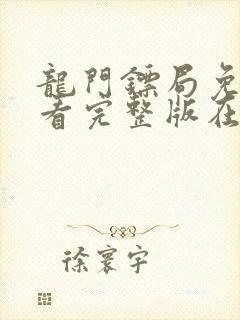 龍門鏢局免
看完整版在
徐寰宇